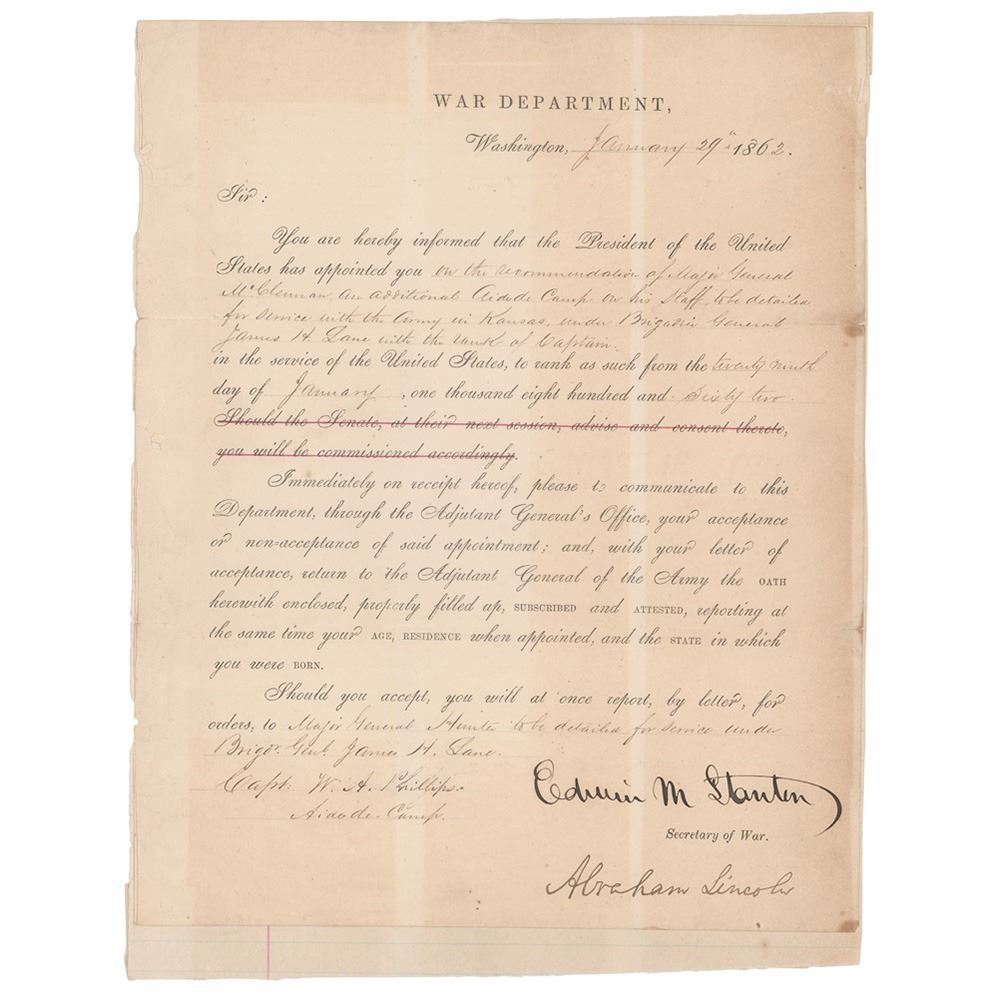 WAR DEPARTMENT,
Washington, January 29" 1862.
Sir:
You are hereby informed that the President of the United
States has appointed you on the recommendation of Major General
McClernan, an additional Aide de Camp on his Staff, to be detailed
for service with the Army in Kansas, under Brigadier General
James H. Lane with the rank of Captain.
in the service of the United States, to rank as such from the twenty ninth
day of January, one thousand eight hundred and Sixty two.
Should the Senate, at their next session, advise and consent thereto,
you will be commissioned accordingly.
Immediately on receipt hereof, please to communicate to this
Department, through the Adjutant General's Office, your acceptance
or non-acceptance of said appointment; and, with your letter of
acceptance, return to the Adjutant General of the Army the OATH
herewith enclosed, properly filled up, SUBSCRIBED and ATTESTED, reporting at
the same time your AGE, RESIDENCE when appointed, and the STATE in which
you were BORN.
Should you accept, you will at once report, by letter, for
orders, to Major General Hunter to be detailed for service under
Brigr. Genl. James H. Lane.
Capt. W. A. Phillips.
Aide de Camp.
Edwin M Stanton
Secretary of War.
Abraham Lincoln